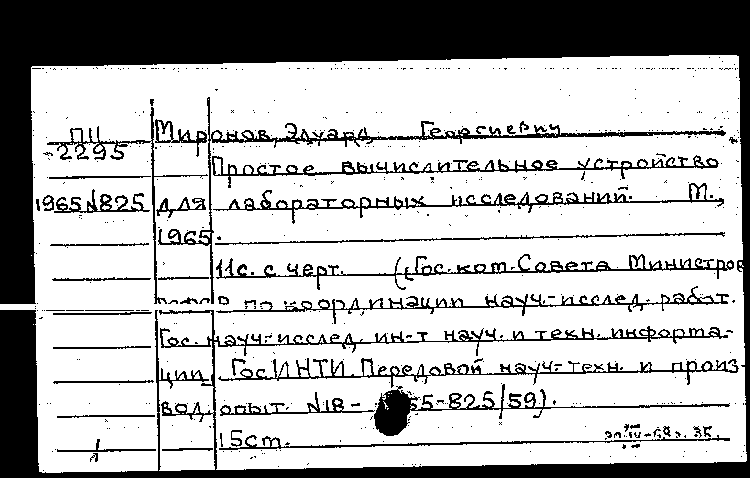 ПЦ
-2295
1965 №825
Миронов, Эдуард Георгиевич
Простое вычислительное устройство
для лабораторных исследований. М.,
1965.
11с. с черт. (Гос. ком. Совета Министров
по координации науч.-исслед. работ.
Гос. науч.-исслед. ин-т науч. и техн. информа-
ции. ГосИНТИ. Передовой науч.-техн. и произ-
вод. опыт. №18- 65-825/59).
15cm.